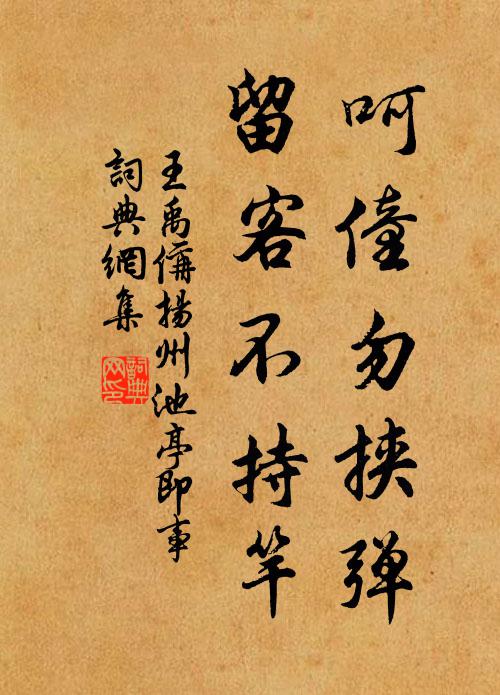 呵僮勿挾弹
留客不持竿
王禹偁揚州池亭即事
詞典網集
詞典网印